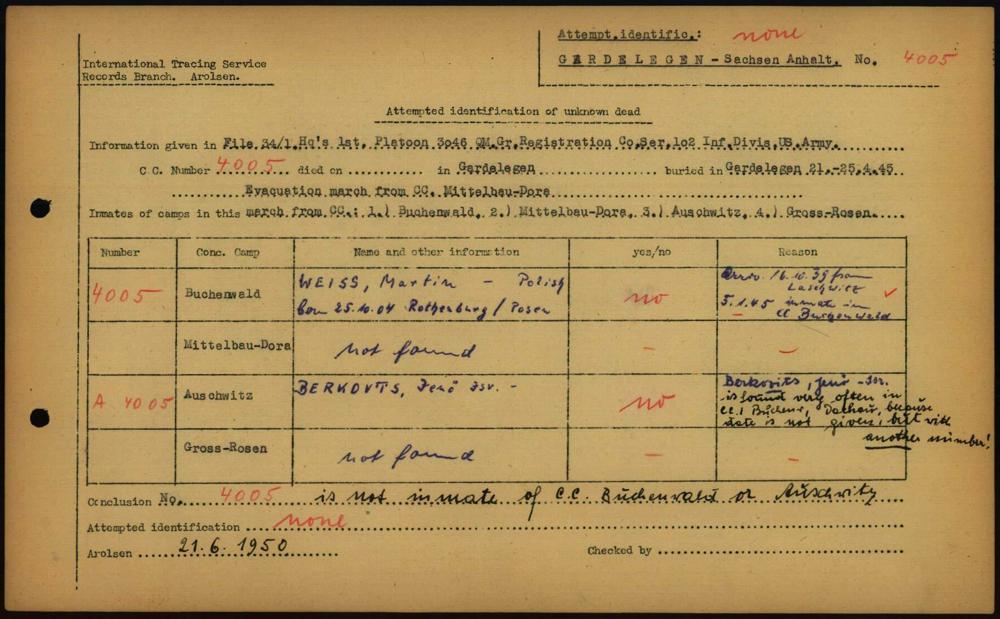 Attempt.identific.: none
GARDELEGEN - Sachsen Anhalt. No. 4005
International Tracing Service
Records Branch. Arolsen.
Attempted identification of unknown dead
Information given in File 34/1 Hq's 1st. Platoon 3o46 QM.Gr.Registration Co.Ser.1o2 Inf.Divis.US.Army.
C.C. Number 4005 died on ............ in Gardelegen ............ buried in Gardelegen 21.-25.4.45
Evacuation march from CC. Mittelbau-Dora
Inmates of camps in this march from CC.: 1.) Buchenwald, 2.) Mittelbau-Dora, 3.) Auschwitz, 4.) Gross-Rosen.
Number Conc. Camp Name and other information yes/no Reason
4005 Buchenwald WEISS, Martin - Polish
born 25.10.04 Rothenburg / Posen no
16.10.39 from
5.1.45 inmate in
Mittelbau-Dora not found - -
A 4005 Auschwitz BERKOVTS, Jenö Isr. - no
Berkovits, Jenö - Isr.
is found very often in
CC.! Buchenw, Dachau, because
date is not given, but with
another number!
Gross-Rosen not found - -
Conclusion No. 4005 is not inmate of C.C. Buchenwald or Auschwitz
Attempted identification none
Arolsen 21.6.1950 Checked by